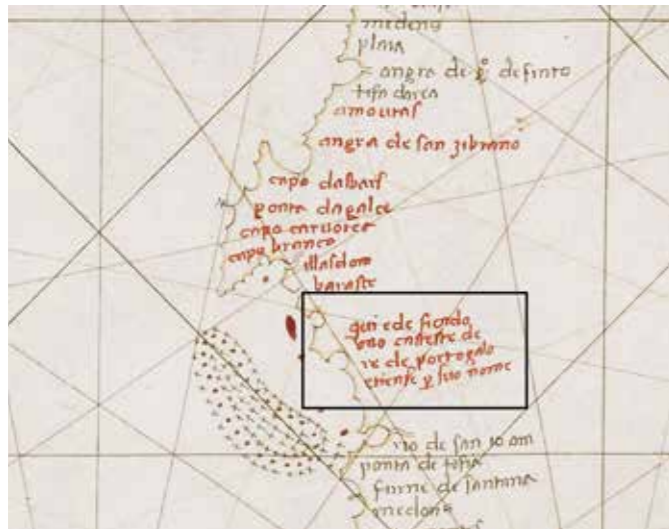 medena
plaia
angra de g.º de sinto
tosa darca
amoutas
angra de san zibrano
capo dalbarf
ponta dagalce
capo caruoeca
capo branco
illasdom
baraste
qui ede ficado
uno casteste de
re de portogalo
etiense p suo nome
rio de san 10 om
ponta de tosia
fiume de santana
meclons